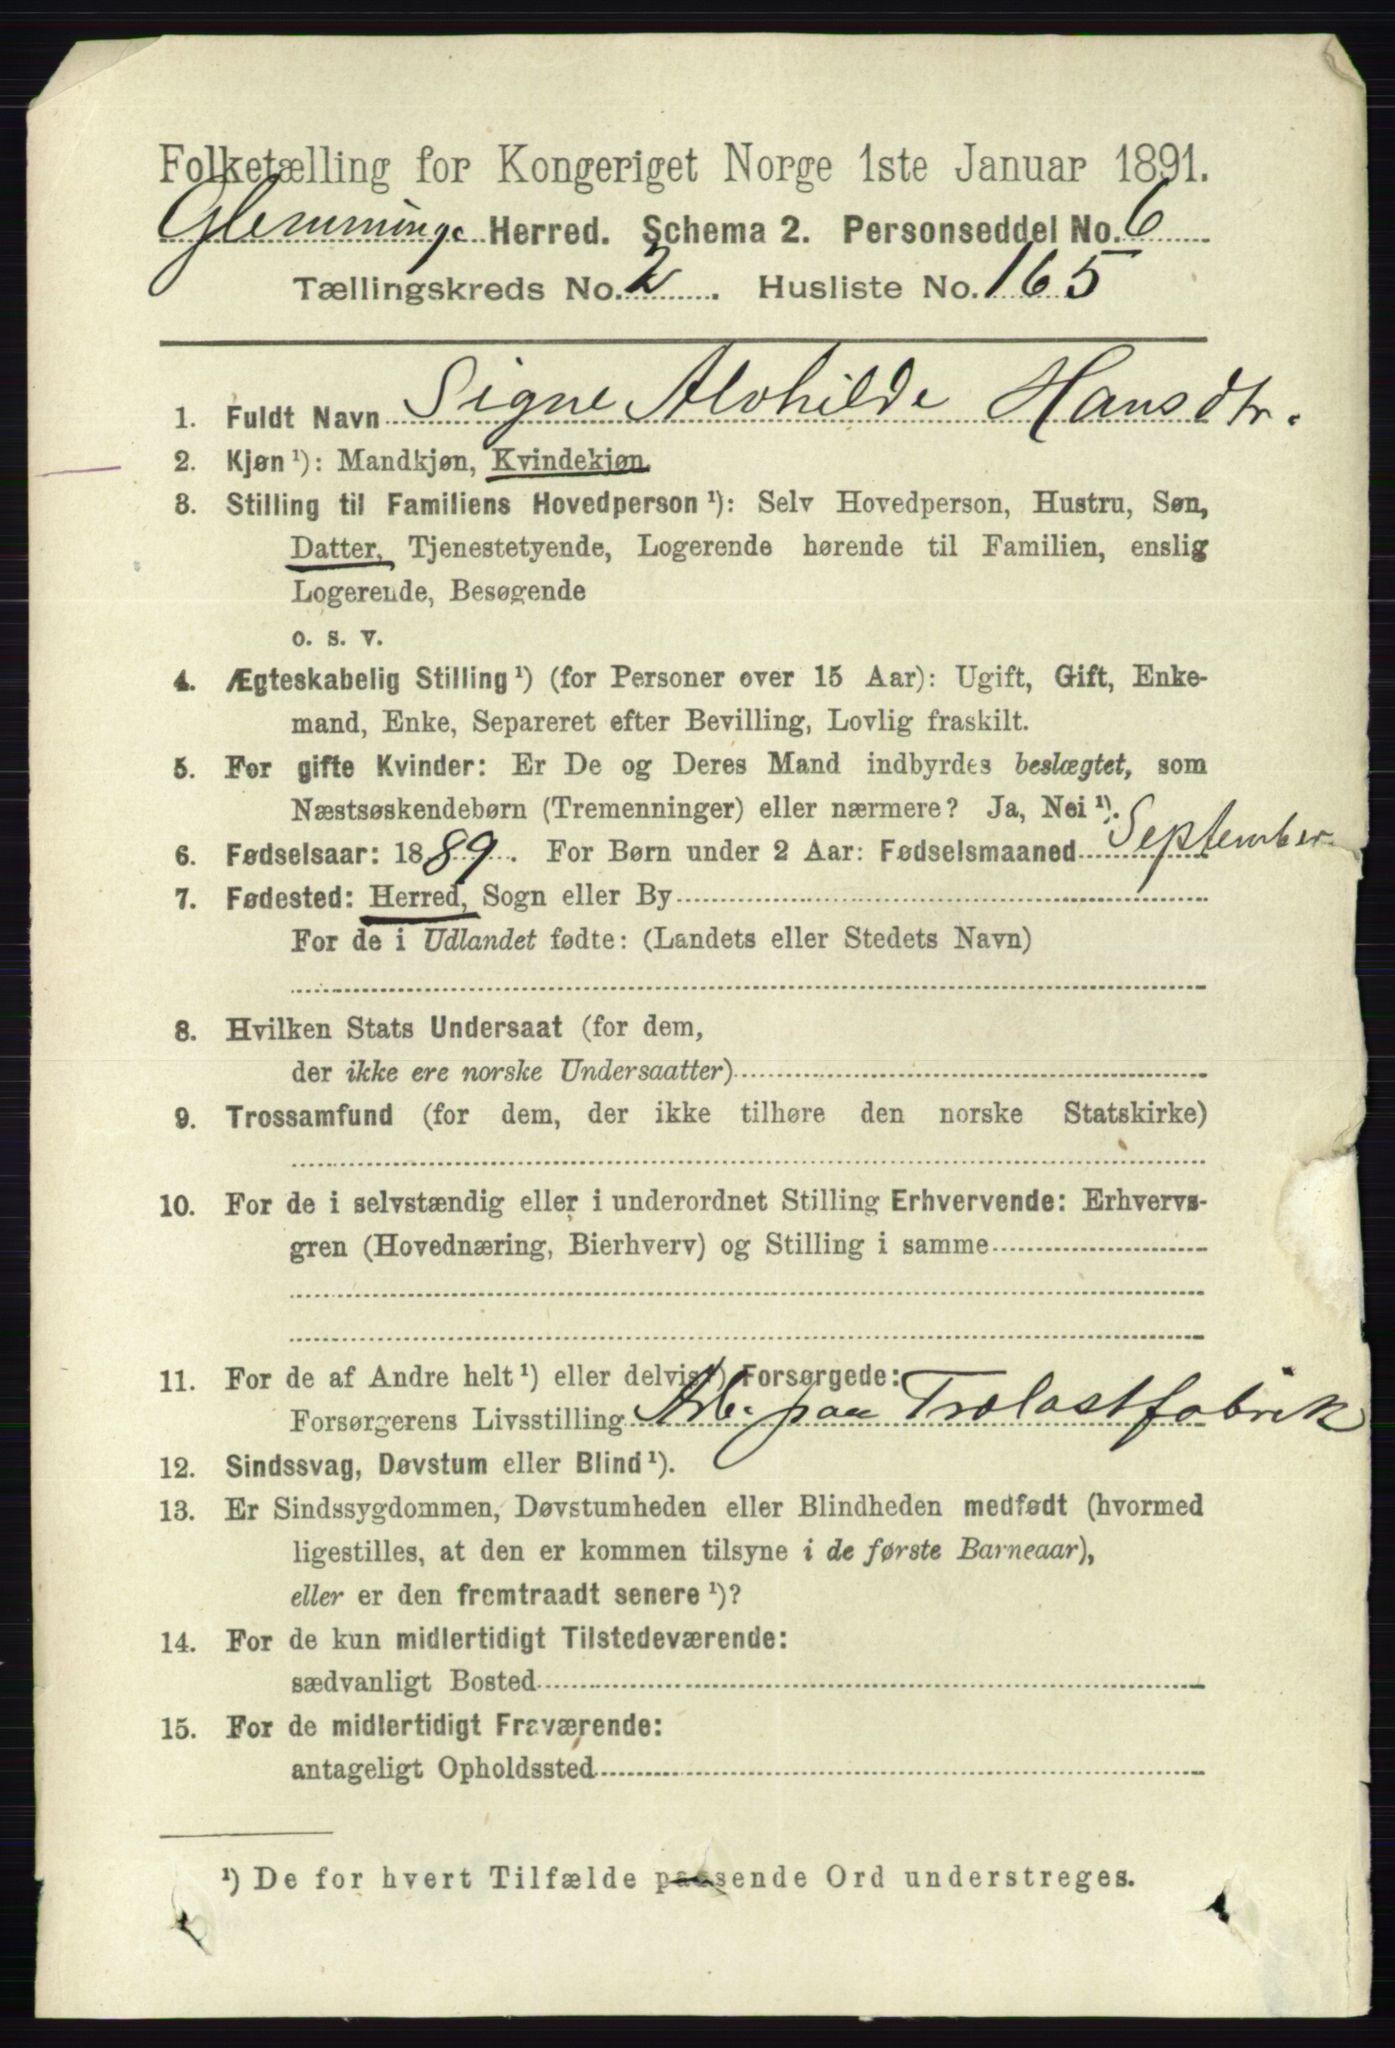 Folketælling for Kongeriget Norge 1ste Januar 1891.
Glemminge Herred. Schema 2. Personseddel No. 6
Tællingskreds No. 2. Husliste No. 165
1. Fuldt Navn Signe Alvhilde Hansdtr.
2. Kjøn ¹): Mandkjøn, Kvindekjøn.
3. Stilling til Familiens Hovedperson ¹): Selv Hovedperson, Hustru, Søn,
Datter, Tjenestetyende, Logerende hørende til Familien, enslig
Logerende, Besøgende
o. s. v.
4. Ægteskabelig Stilling ¹) (for Personer over 15 Aar): Ugift, Gift, Enke-
mand, Enke, Separeret efter Bevilling, Lovlig fraskilt.
5. For gifte Kvinder: Er De og Deres Mand indbyrdes beslægtet, som
Næstsøskendebørn (Tremenninger) eller nærmere? Ja, Nei ¹).
6. Fødselsaar: 1889. For Børn under 2 Aar: Fødselsmaaned September
7. Fødested: Herred, Sogn eller By
For de i Udlandet fødte: (Landets eller Stedets Navn)
8. Hvilken Stats Undersaat (for dem,
der ikke ere norske Undersaatter)
9. Trossamfund (for dem, der ikke tilhøre den norske Statskirke)
10. For de i selvstændig eller i underordnet Stilling Erhvervende: Erhvervs-
gren (Hovednæring, Bierhverv) og Stilling i samme
11. For de af Andre helt ¹) eller delvis ¹) Forsørgede:
Forsørgerens Livsstilling Arb. paa Trælastfabrik
12. Sindssvag, Døvstum eller Blind ¹).
13. Er Sindssygdommen, Døvstumheden eller Blindheden medfødt (hvormed
ligestilles, at den er kommen tilsyne i de første Barneaar),
eller er den fremtraadt senere ¹)?
14. For de kun midlertidigt Tilstedeværende:
sædvanligt Bosted
15. For de midlertidigt Fraværende:
antageligt Opholdssted
¹) De for hvert Tilfælde passende Ord understreges.